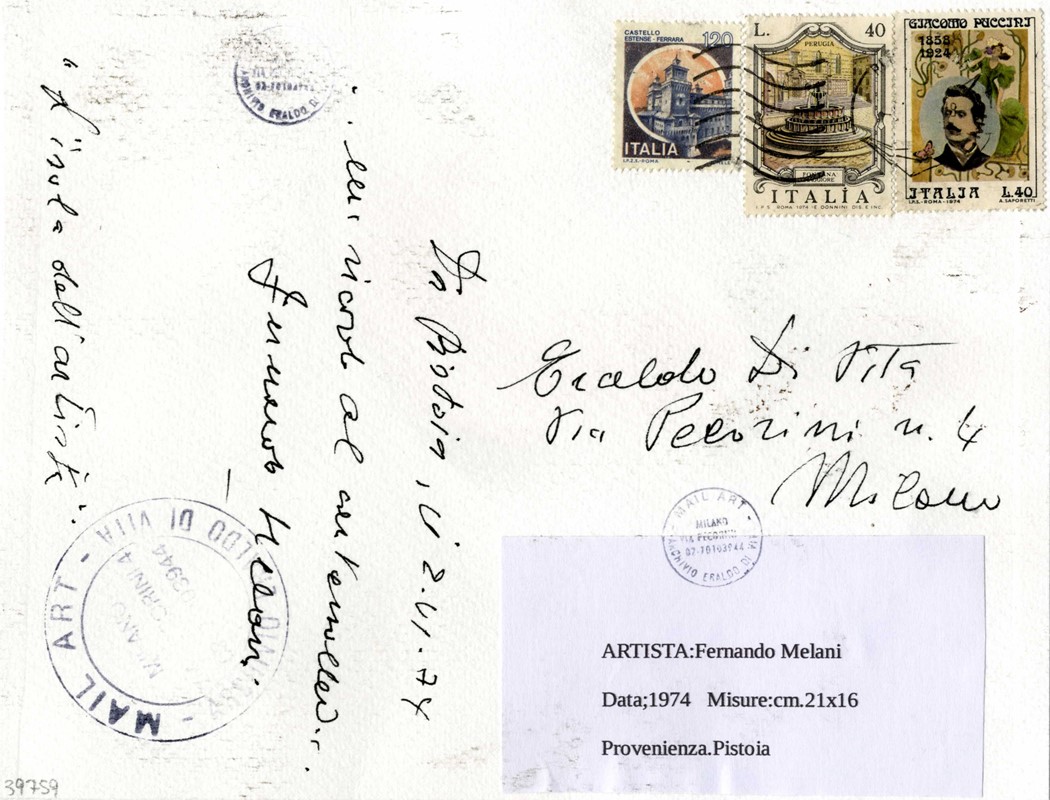 CASTELLO
ESTENSE - FERRARA
120
ITALIA
I.P.Z.S. - ROMA
L. 40
PERUGIA
FONTANA
MAGGIORE
ITALIA
I.P.S. ROMA 1974 E. DONNINI DIS. E INC.
GIACOMO PUCCINI
1858
1924
ITALIA L.40
I.P.S. - ROMA - 1974 A. SAPORETTI
"L'isola dell'artista".
Da Pistoia, li 2-11-74
mi ricordo al
Fernando Melani
Eraldo Di Vita
Via Pecorini n. 4
Milano
- MAIL ART -
MILANO
VIA PECORINI
ARCHIVIO ERALDO DI VITA
MAIL ART -
ALDO DI VITA
MILANO
ARCHIVIO ERALDO DI
ARTISTA:Fernando Melani
Data;1974 Misure:cm.21x16
Provenienza.Pistoia
39759